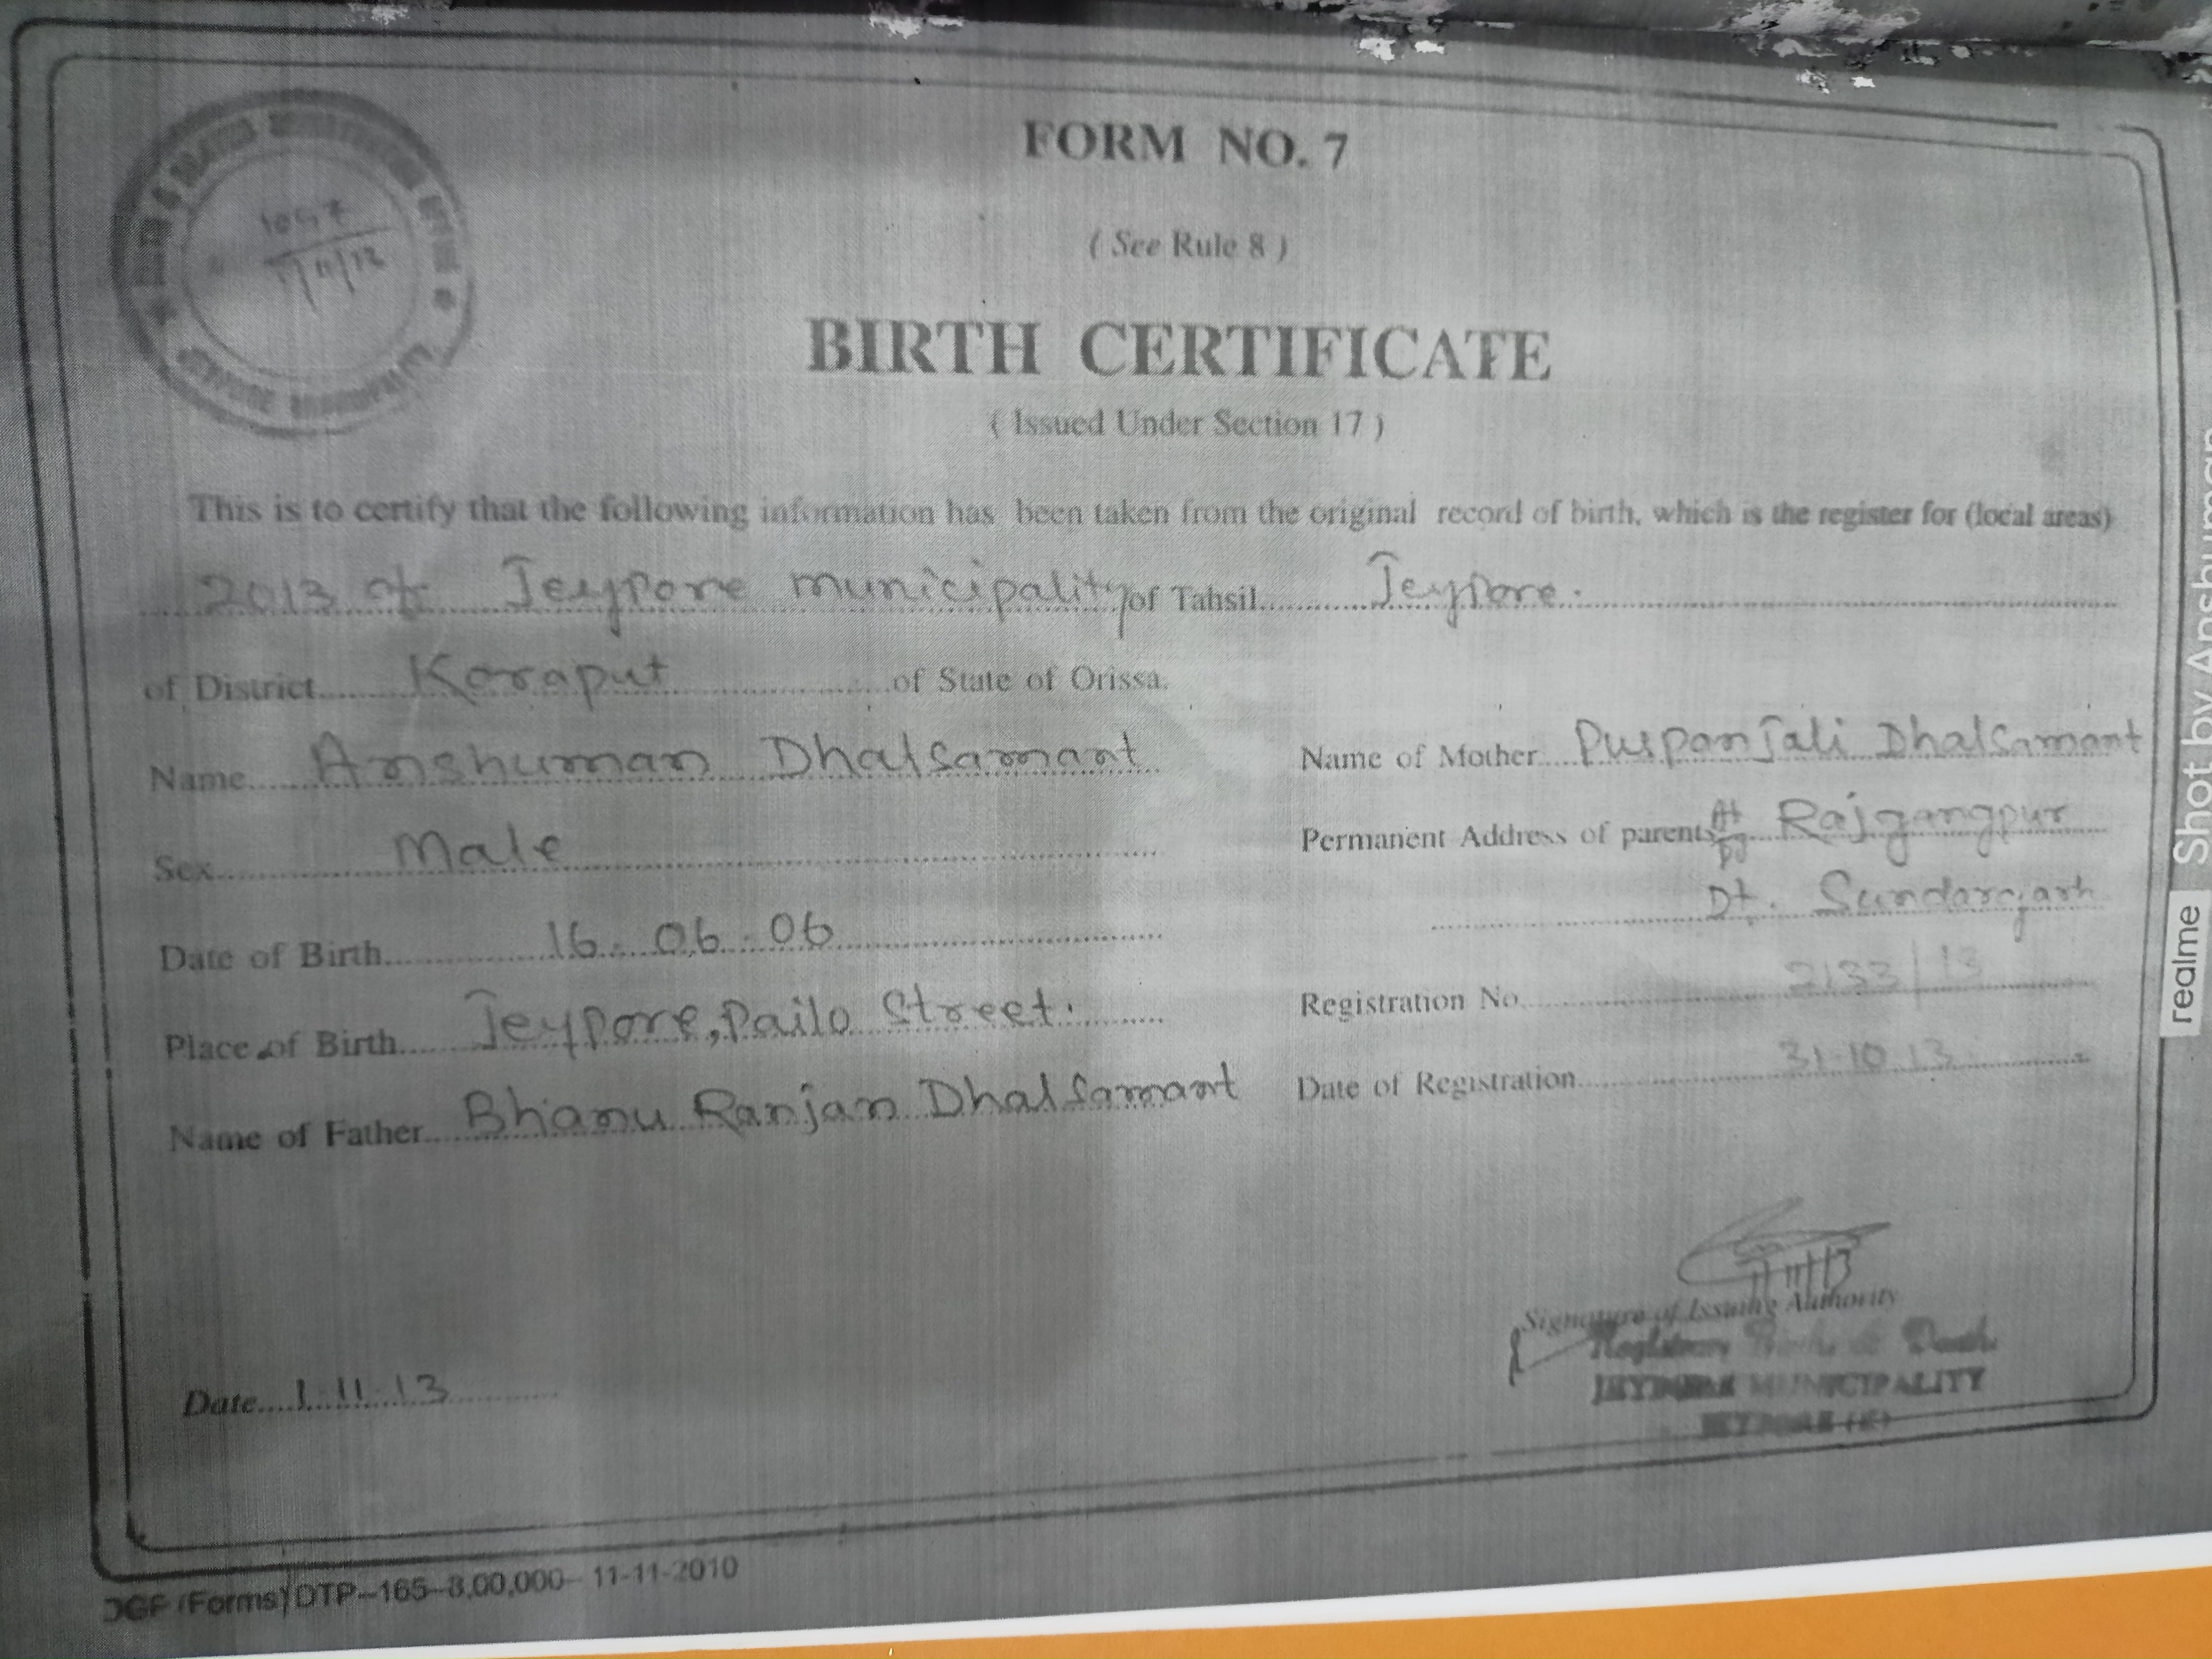 FORM NO. 7
( See Rule 8 )
BIRTH CERTIFICATE
( Issued Under Section 17 )
This is to certify that the following information has been taken from the original record of birth, which is the register for (local areas)
2013 of Jeypore municipality of Tahsil Jeypore.
of District Koraput of State of Orissa.
Name Anshuman Dhalsamant
Sex Male
Date of Birth 16-06-06
Place of Birth Jeypore, Pailo Street.
Name of Father Bhanu Ranjan Dhalsamant
Name of Mother Puspanjali Dhalsamant
Permanent Address of parents At Rajgangpur
Dt. Sundargarh
Registration No. 2133/13
Date of Registration 31-10-13
1/11/13
Signature of Issuing Authority
JEYPORE MUNICIPALITY
Date 1-11-13
DTP-165-3,00,000- 11-11-2010
realme Shot by Anshuman